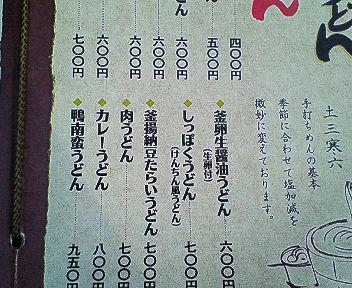 うどん
ん
土三寒六
手打ちめんの基本
季節に合わせて塩加減を
微妙に変えております。
四〇〇円
ん 五〇〇円
六〇〇円
うどん 六〇〇円
六〇〇円
六〇〇円
七〇〇円
◆釜卵生醤油うどん 六〇〇円
(生卵付)
◆しっぽくうどん 七〇〇円
(けんちん風うどん)
◆釜揚納豆たらいうどん 七〇〇円
◆肉うどん 七〇〇円
◆カレーうどん 八〇〇円
◆鴨南蛮うどん 九五〇円